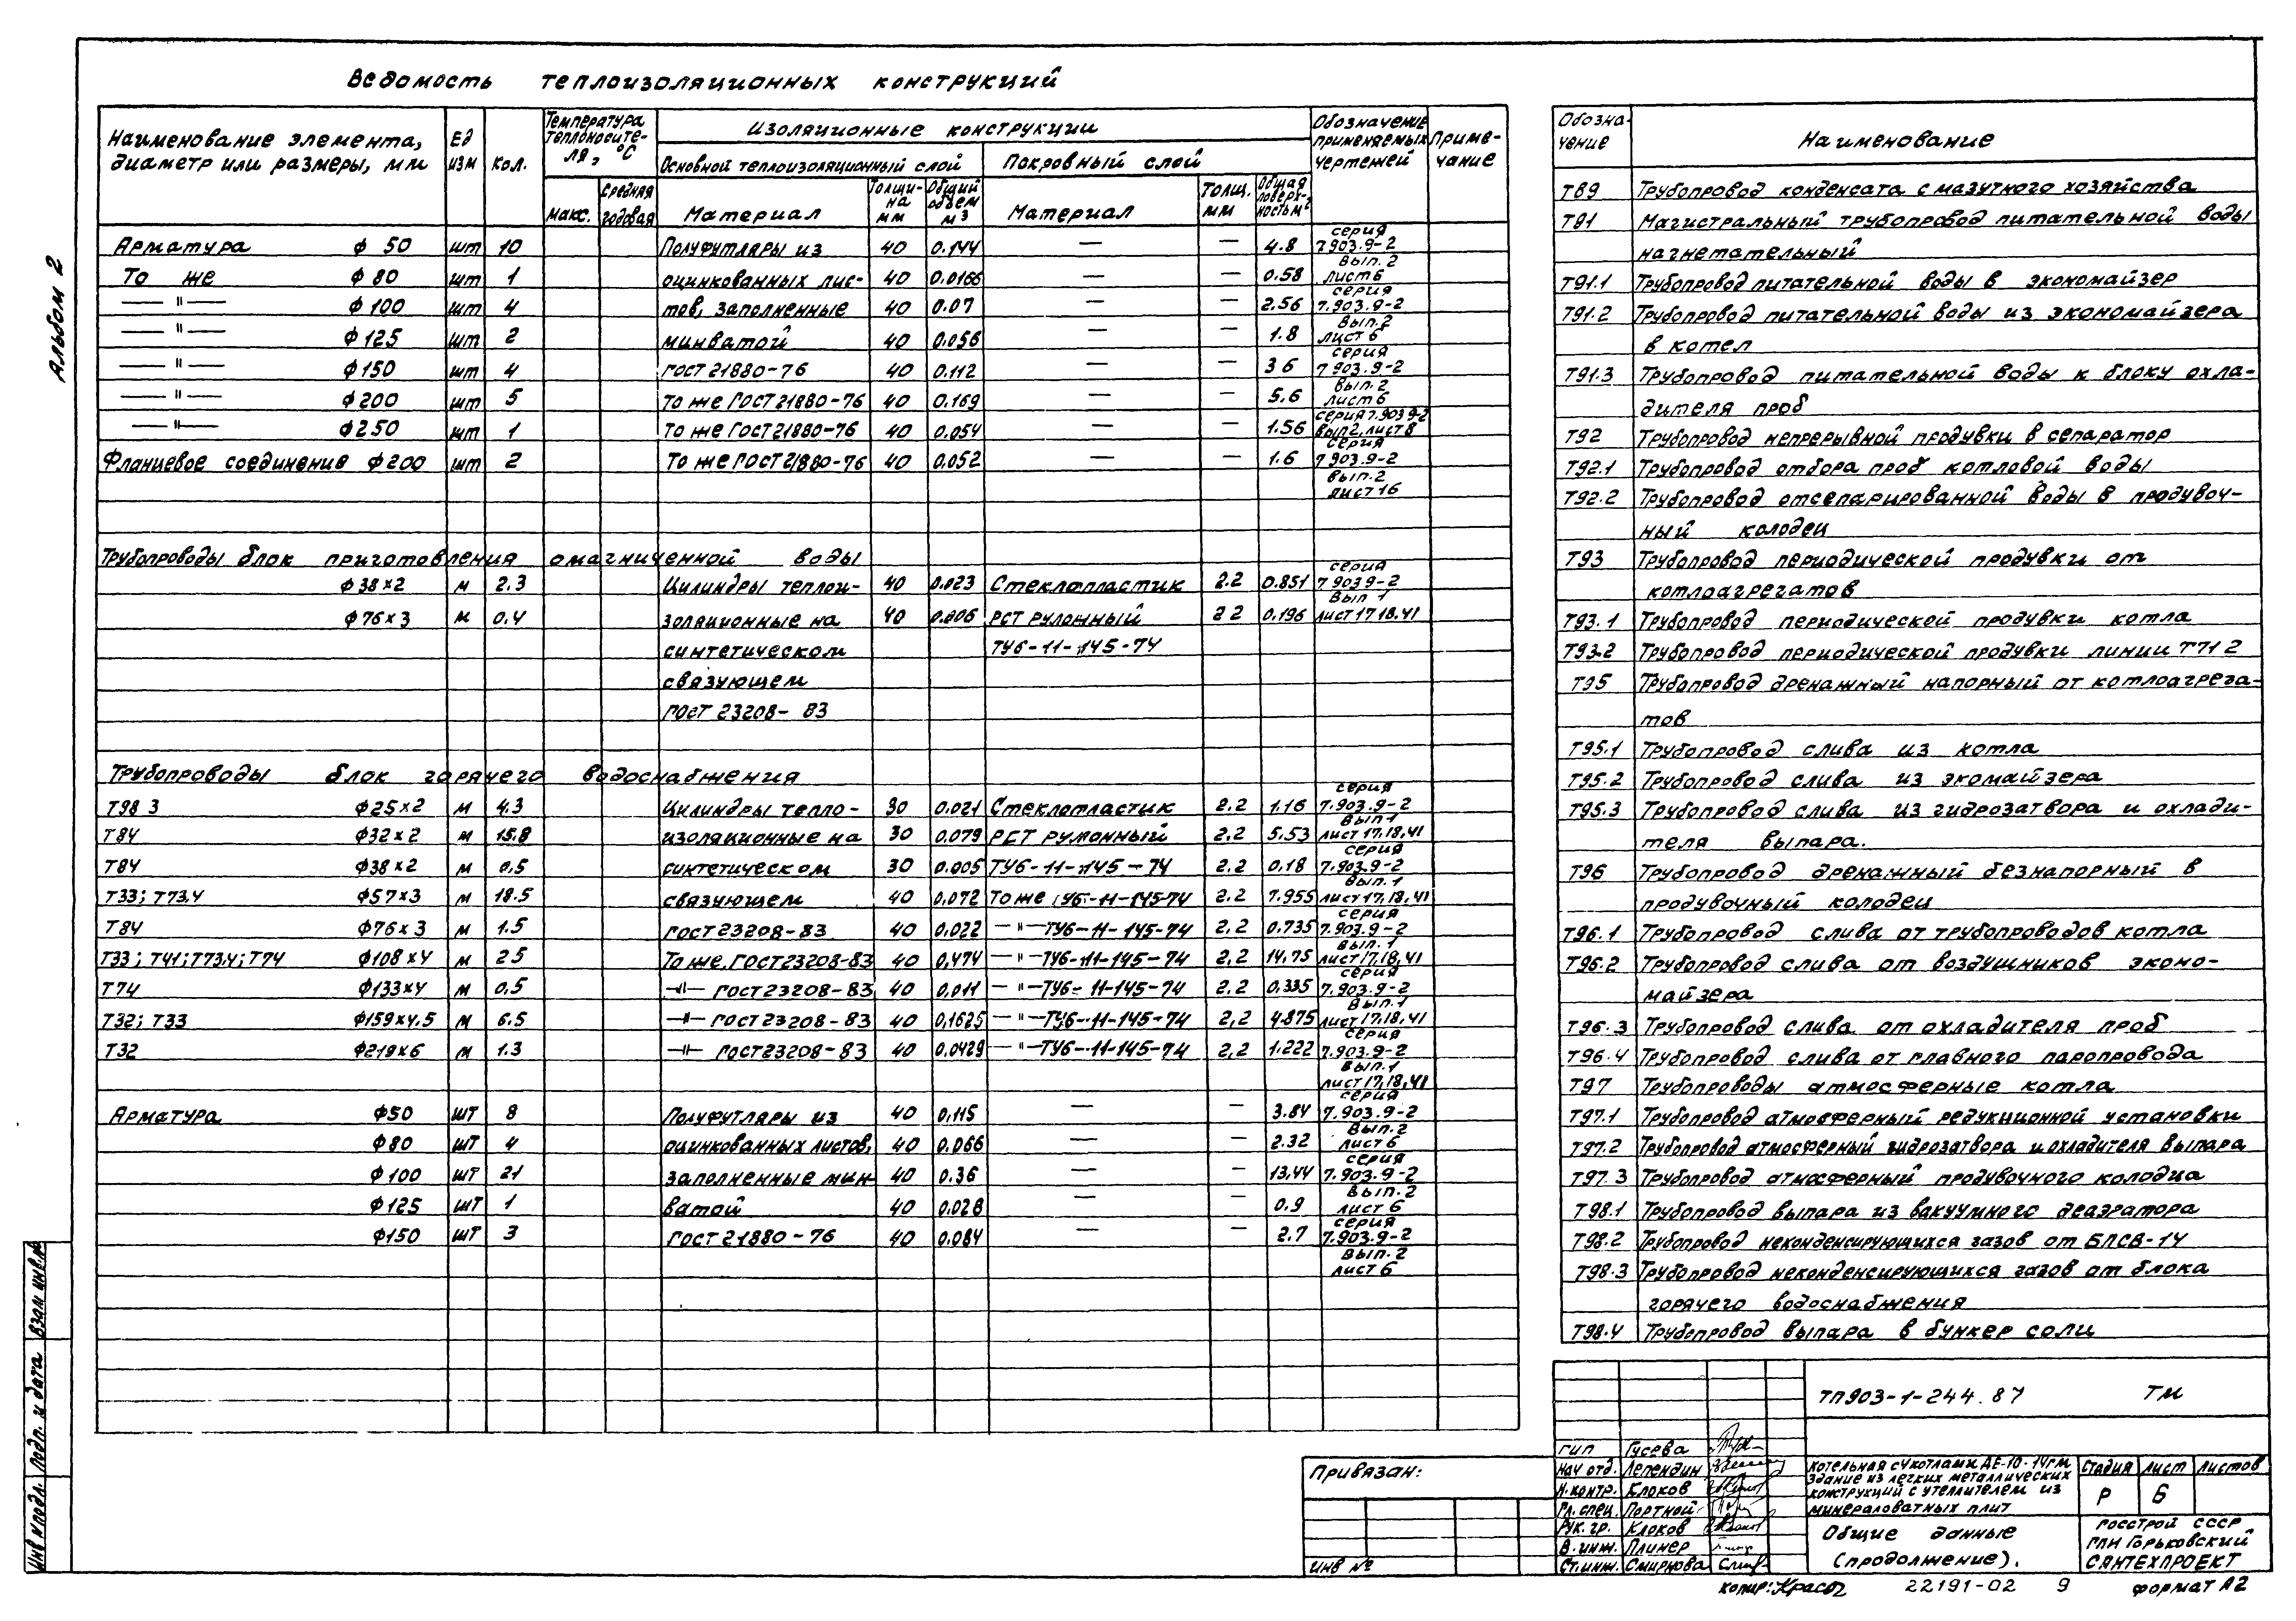 Альбом 2
Ведомость теплоизоляционных конструкций
Наименование элемента, диаметр или размеры, мм | Ед изм | Кол. | Температура теплоносителя, °С | Изоляционные конструкции | Обозначение применяемых чертежей | Примечание
Основной теплоизоляционный слой | Покровный слой
макс. | средняя годовая | Материал | Толщина мм | Общий объем м³ | Материал | Толщ. мм | Общая поверхность м²
Арматура ф 50 шт 10 Полуфутляры из 40 0.144 — — 4.8 серия 7.903.9-2
То же ф 80 шт 1 оцинкованных лис- 40 0.0166 — — 0.58 вып.2 лист 6
— " — ф 100 шт 4 тов, заполненные 40 0.07 — — 2.56 серия 7.903.9-2
— " — ф 125 шт 2 минватой 40 0.056 — — 1.8 вып.2 лист 6
— " — ф 150 шт 4 гост 21880-76 40 0.112 — — 3 6 серия 7 903.9-2
— " — ф 200 шт 5 то же ГОСТ 21880-76 40 0.169 — — 5.6 вып.2 лист 6
— " — ф 250 шт 1 то же ГОСТ 21880-76 40 0.054 — — 1.56 серия 7.903 9-2 вып 2, лист 8
Фланцевое соединение ф 200 шт 2 То же ГОСТ 21880-76 40 0.052 — — 1.6 серия 7 903.9-2
вып.2
лист 16
Трубопроводы блок приготовления омагниченной воды
ф 38×2 м 2.3 Цилиндры теплои- 40 0.023 Стеклопластик 2.2 0.851 серия 7 903 9-2
ф 76×3 м 0.4 золяционные на 40 0.006 РСТ рулонный 2 2 0.196 вып 1 лист 17 18.41
синтетическом ТУ6-11-145-74
связующем
ГОСТ 23208-83
Трубопроводы блок горячего водоснабжения
Т98 3 ф25×2 м 4.3 Цилиндры тепло- 30 0.021 Стеклопластик 2.2 1.16 серия 7.903.9-2
Т84 ф32×2 м 15.8 изоляционные на 30 0.079 РСТ рулонный 2.2 5.53 вып 1 лист 17,18,41
Т84 ф38×2 м 0.5 синтетическом 30 0.005 ТУ6-11-145-74 2.2 0.18 серия 7.903.9-2
Т33; Т73.4 ф57×3 м 18.5 связующем 40 0.072 То же ТУ6-11-145-74 2.2 7.955 вып.1 лист 17,18,41
Т84 ф76×3 м 1.5 гост 23208-83 40 0.022 — " — ТУ6-11-145-74 2.2 0.735 серия 7.903.9-2
Т33; Т41; Т73.4; Т74 ф108×4 м 25 То же. ГОСТ 23208-83 40 0.474 — " — ТУ6-11-145-74 2,2 14.75 вып.1 лист 17,18,41
Т74 ф133×4 м 0.5 — " — ГОСТ 23208-83 40 0.011 — " — ТУ6-11-145-74 2.2 0.335 серия 7.903.9-2
Т32; Т33 ф159×4.5 м 6.5 — " — ГОСТ 23208-83 40 0.1625 — " — ТУ6-11-145-74 2,2 4.875 вып.1 лист 17,18,41
Т32 ф219×6 м 1.3 — " — ГОСТ 23208-83 40 0.0429 — " — ТУ6-11-145-74 2,2 1.222 серия 7.903.9-2
вып.1
лист 17,18,41
Арматура ф50 шт 8 Полуфутляры из 40 0.115 — — 3.84 серия 7.903.9-2
ф80 шт 4 оцинкованных листов, 40 0.066 — — 2.32 вып.2 лист 6
ф100 шт 21 заполненные мин- 40 0.36 — — 13.44 серия 7.903.9-2
ф125 шт 1 ватой 40 0.028 — — 0.9 вып.2 лист 6
ф150 шт 3 гост 21880-76 40 0.084 — — 2.7 серия 7.903.9-2
вып.2
лист 6
Обозначение | Наименование
Т89 Трубопровод конденсата с мазутного хозяйства
Т91 Магистральный трубопровод питательной воды
нагнетательный
Т91.1 Трубопровод питательной воды в экономайзер
Т91.2 Трубопровод питательной воды из экономайзера
в котел
Т91.3 Трубопровод питательной воды к блоку охла-
дителя проб
Т92 Трубопровод непрерывной продувки в сепаратор
Т92.1 Трубопровод отбора проб котловой воды
Т92.2 Трубопровод отсепарированной воды в продувоч-
ный колодец
Т93 Трубопровод периодической продувки от
котлоагрегатов
Т93.1 Трубопровод периодической продувки котла
Т93.2 Трубопровод периодической продувки линии Т71 2
Т95 Трубопровод дренажный напорный от котлоагрега-
тов
Т95.1 Трубопровод слива из котла
Т95.2 Трубопровод слива из экомайзера
Т95.3 Трубопровод слива из гидрозатвора и охлади-
теля выпара.
Т96 Трубопровод дренажный безнапорный в
продувочный колодец
Т96.1 Трубопровод слива от трубопроводов котла
Т96.2 Трубопровод слива от воздушников эконо-
майзера
Т96.3 Трубопровод слива от охладителя проб
Т96.4 Трубопровод слива от главного паропровода
Т97 Трубопроводы атмосферные котла
Т97.1 Трубопровод атмосферный редукционной установки
Т97.2 Трубопровод атмосферный гидрозатвора и охладителя выпара
Т97.3 Трубопровод атмосферный продувочного колодца
Т98.1 Трубопровод выпара из вакуумного деаэратора
Т98.2 Трубопровод неконденсирующихся газов от БПСВ-14
Т98.3 Трубопровод неконденсирующихся газов от блока
горячего водоснабжения
Т98.4 Трубопровод выпара в бункер соли
ТП903-1-244.87 ТМ
гип Гусева
Нач отд. Лепендин
Н.контр. Клоков
Гл. спец. Портной
Рук. гр. Клоков
В. инж. Плинер
Ст. инж. Смирнова
котельная с 4 котлами ДЕ-10-14ГМ
здание из легких металлических
конструкций с утеплителем из
минераловатных плит
Стадия Лист Листов
Р 6
Общие данные
(продолжение).
Госстрой СССР
ГПИ Горьковский
САНТЕХПРОЕКТ
Привязан:
Инв №
Инв № подл. Подп. и дата Взам инв. №
копир: 22191-02 9 формат А2